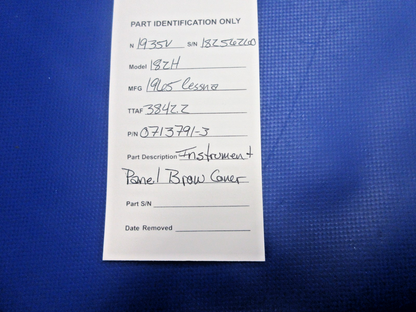 PART IDENTIFICATION ONLY
N 1935V S/N 18256260
Model 182H
MFG 1965 Cessna
TTAF 3842.2
P/N 0713791-3
Part Description Instrument
Panel Brow Cover
Part S/N
Date Removed